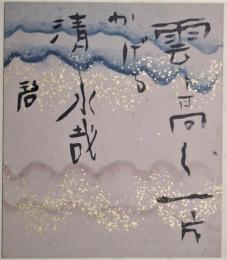 雲高く一片
かげる
清水哉